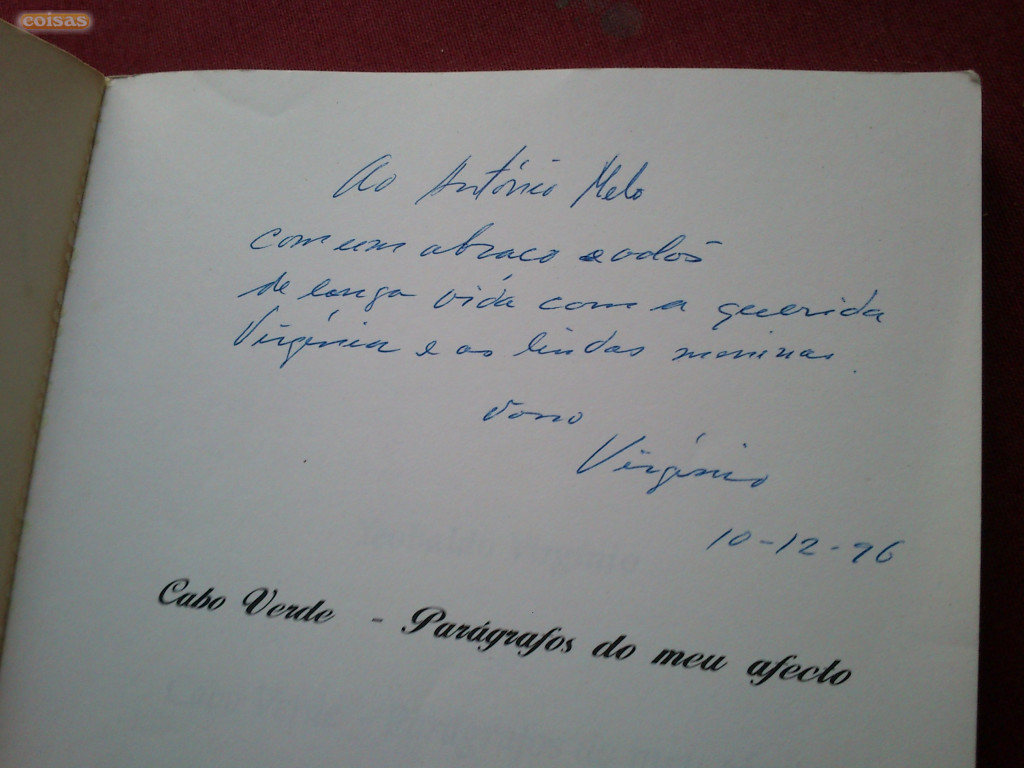 coisas
Ao António Melo
com um abraço e votos
de longa vida com a querida
Virgínia e as lindas meninas.
Vosso
Virgínio
10-12-96
Teobaldo Virgínio
Cabo Verde - Parágrafos do meu afecto
Cabo Verde - Parágrafos do meu